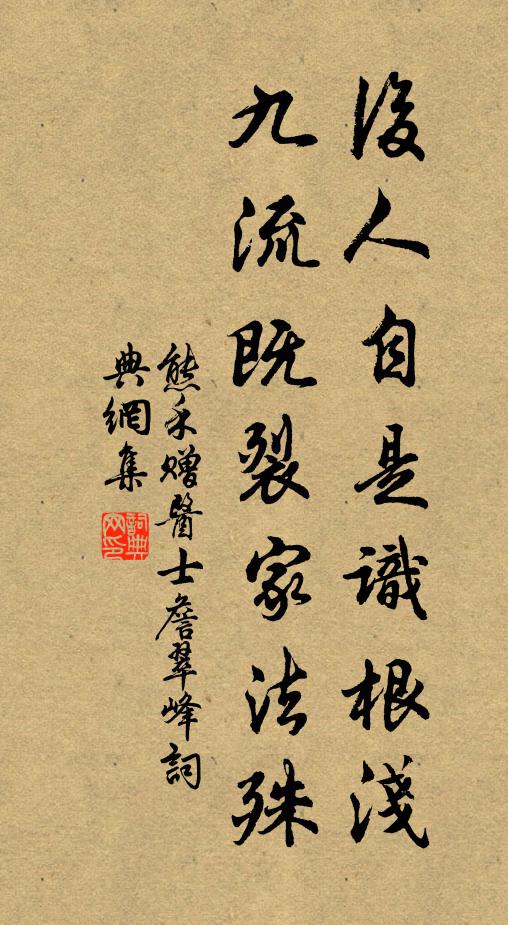 後人自是識根淺
九流既裂家法殊
熊禾贈醫士詹翠峰詞
典網集
詞典
网印